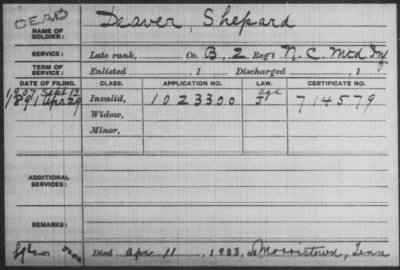 DEAD
NAME OF SOLDIER: Deaver, Shepard
SERVICE: Late rank, Co. B, 2 Reg't N.C. Mtd Inf
TERM OF SERVICE: Enlisted , 1 Discharged , 1
DATE OF FILING. CLASS. APPLICATION NO. LAW. CERTIFICATE NO.
1907 Sept 12 age
1891 Apr 29 Invalid, 1023300 714579
Widow,
Minor,
ADDITIONAL SERVICES:
REMARKS:
Died Apr 11, 1923, at Morristown, Tenn